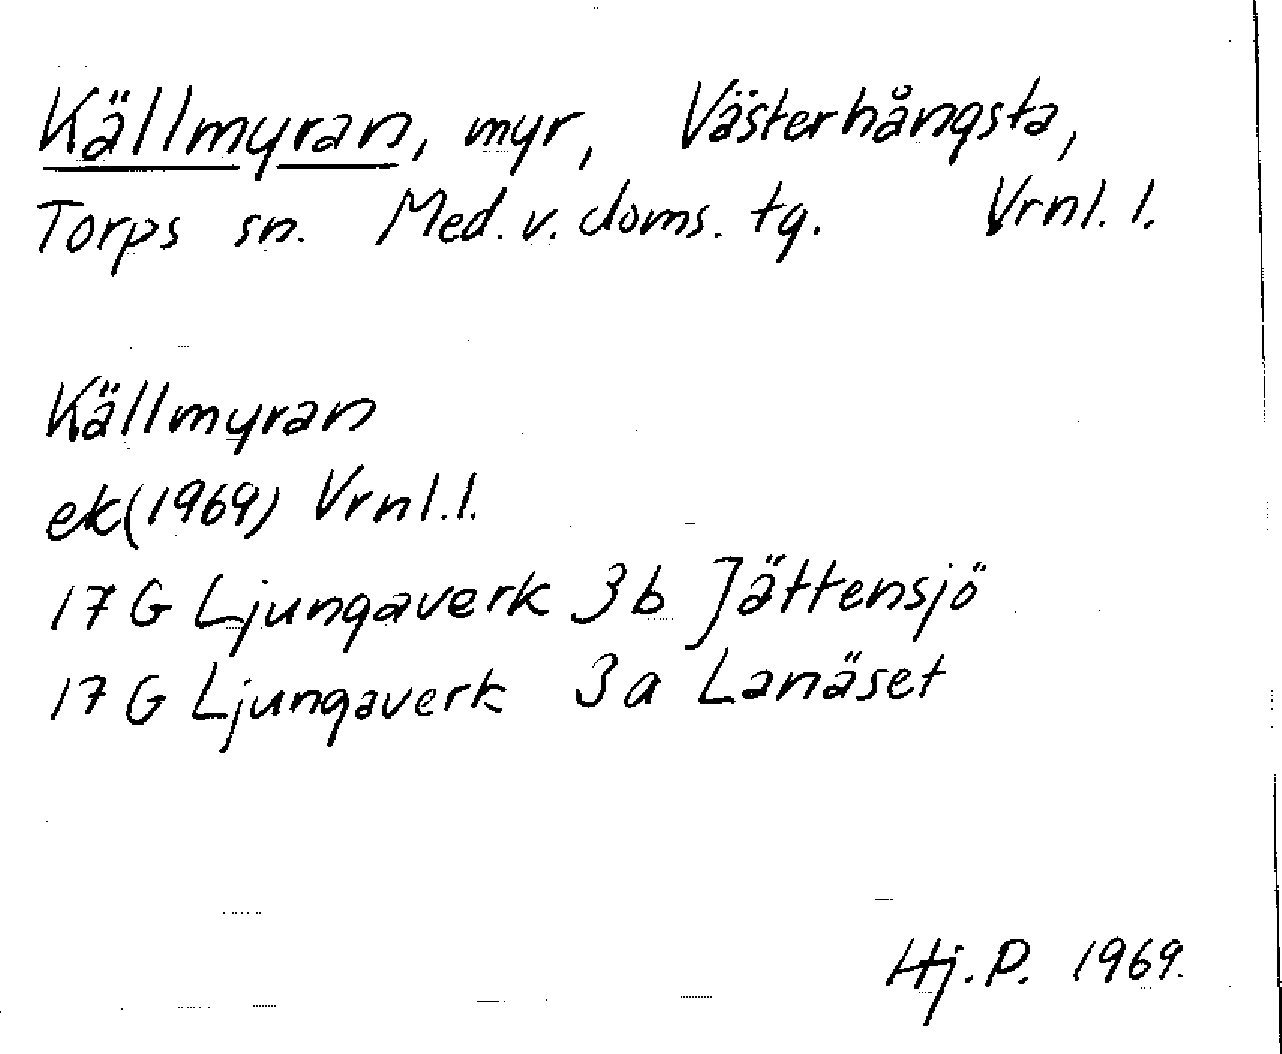 Källmyran, myr, Västerhångsta,
Torps sn. Med. v. doms. tg. Vrnl. l.
Källmyran
ek (1969) Vrnl. l.
17 G Ljungaverk 3b Jättensjö
17 G Ljungaverk 3a Lanäset
Hj. P. 1969.